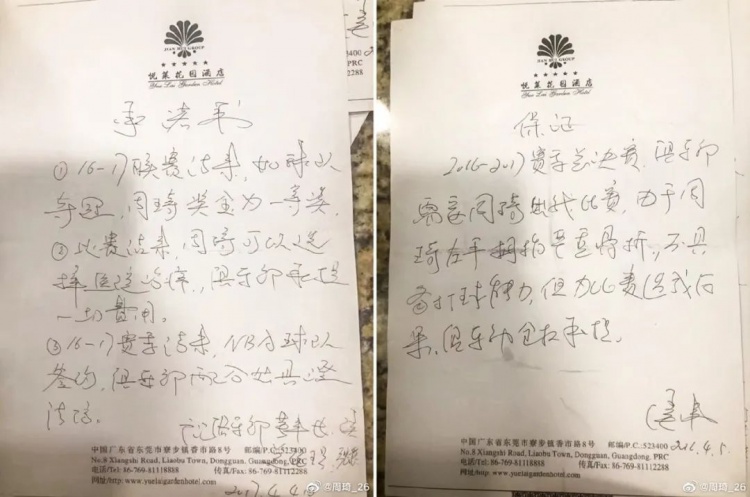 JIAN HUI GROUP
★ ★ ★ ★ ★
悦莱花园酒店
Yue Lai Garden Hotel
承诺书
①16-17联赛结束,如球队
夺冠,周琦奖金为一等奖,
②比赛结束,周琦可以选
择医院治疗,俱乐部承担
一切费用。
③16-17赛季结束,NBA球队
签约,俱乐部配合出具澄
清信。
俱乐部董事长
中国广东省东莞市寮步镇香市路8号
No.8 Xiangshi Road, Liaobu Town, Dongguan, Guangdong, PRC
电话/Tel: 86-769-81118888
网址/http: www.yuelaigardenhotel.com
2017.4.
523400
PRC
112288
JIAN HUI GROUP
★ ★ ★ ★ ★
悦莱花园酒店
Yue Lai Garden Hotel
保证
2016-2017赛季总决赛,俱乐部
需要周琦出战比赛,由于周
琦左手拇指垂直骨折,不具
备打球能力,但为比赛造成后
果,俱乐部全权承担。
中国广东省东莞市寮步镇香市路8号 邮编/P.C.:523400
No.8 Xiangshi Road, Liaobu Town, Dongguan, Guangdong, PRC
电话/Tel: 86-769-81118888 传真/Fax: 86-769-81112288
网址/http: www.yuelaigardenhotel.com
@周琦_26
@周琦_26